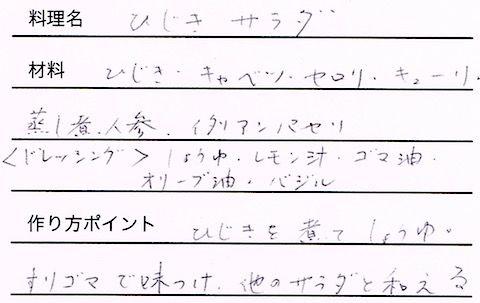 料理名 ひじきサラダ
材料 ひじき・キャベツ・セロリ・キューリ・
蒸し煮人参・イタリアンパセリ
<ドレッシング> しょうゆ・レモン汁・ゴマ油・
オリーブ油・バジル
作り方ポイント ひじきを煮てしょうゆ・
すりゴマで味つけ、他のサラダと和える